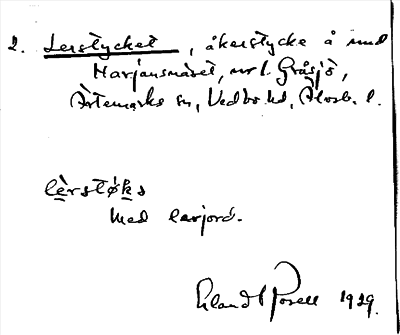 2. Lerstycket, åkerstycke å und
Marjansnäset, nr 1. Gråsjö,
Ärtemarks sn, Vedbo hd, Älvsb. l.
lèrstø̀ks
Med larjord.
Erland Rosell 1929.